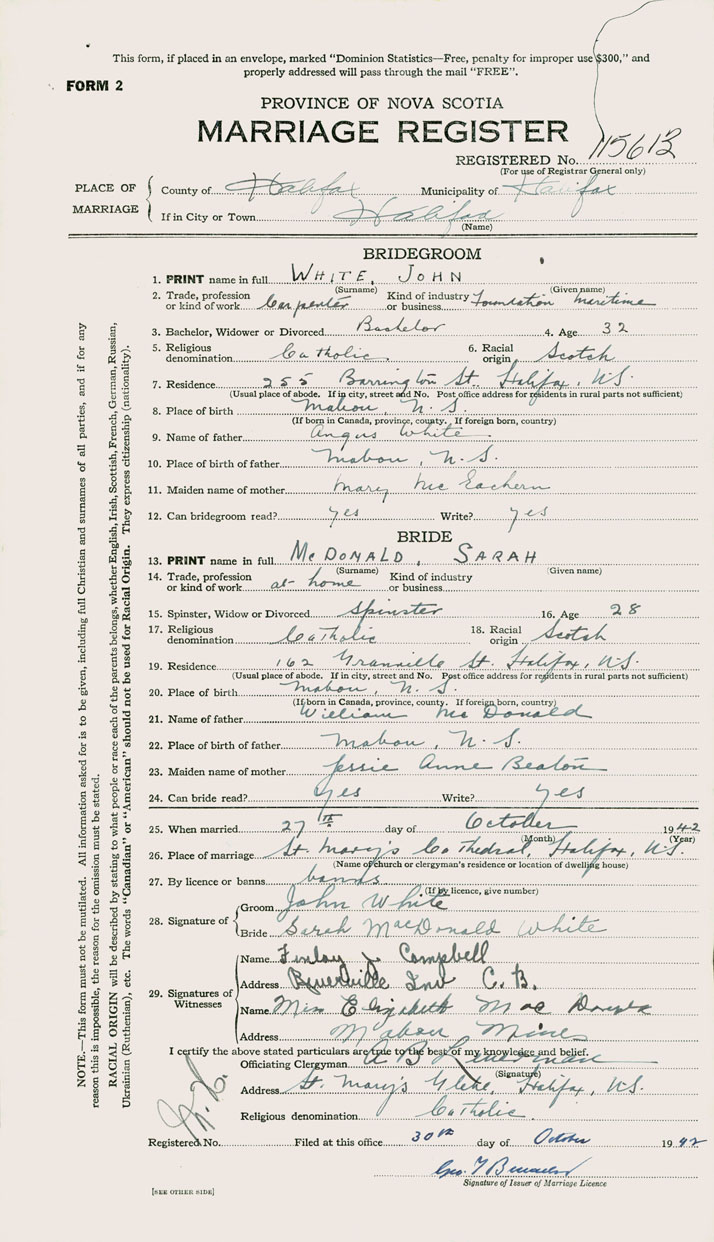 This form, if placed in an envelope, marked "Dominion Statistics—Free, penalty for improper use $300," and
properly addressed will pass through the mail "FREE".
FORM 2
PROVINCE OF NOVA SCOTIA
MARRIAGE REGISTER
REGISTERED No. 115613
(For use of Registrar General only)
PLACE OF MARRIAGE
County of Halifax Municipality of Halifax
If in City or Town Halifax
(Name)
BRIDEGROOM
1. PRINT name in full WHITE, JOHN
(Surname) (Given name)
2. Trade, profession or kind of work Carpenter Kind of industry or business Foundation Maritime
3. Bachelor, Widower or Divorced Bachelor 4. Age 32
5. Religious denomination Catholic 6. Racial origin Scotch
7. Residence 255 Barrington St. Halifax, N.S.
(Usual place of abode. If in city, street and No. Post office address for residents in rural parts not sufficient)
8. Place of birth Mabou, N.S.
(If born in Canada, province, county. If foreign born, country)
9. Name of father Angus White
10. Place of birth of father Mabou, N.S.
11. Maiden name of mother Mary McEachern
12. Can bridegroom read? yes Write? yes
BRIDE
13. PRINT name in full McDONALD, SARAH
(Surname) (Given name)
14. Trade, profession or kind of work at home Kind of industry or business
15. Spinster, Widow or Divorced Spinster 16. Age 28
17. Religious denomination Catholic 18. Racial origin Scotch
19. Residence 162 Granville St. Halifax, N.S.
(Usual place of abode. If in city, street and No. Post office address for residents in rural parts not sufficient)
20. Place of birth Mabou, N.S.
(If born in Canada, province, county. If foreign born, country)
21. Name of father William McDonald
22. Place of birth of father Mabou, N.S.
23. Maiden name of mother Jessie Anne Beaton
24. Can bride read? Yes Write? yes
25. When married 27th day of October 1942
(Month) (Year)
26. Place of marriage St. Mary's Cathedral, Halifax, N.S.
(Name of church or clergyman's residence or location of dwelling house)
27. By licence or banns banns
(If by licence, give number)
28. Signature of
Groom John White
Bride Sarah MacDonald White
29. Signatures of Witnesses
Name Finlay J. Campbell
Address Inv C.B.
Name Miss Elizabeth Mac
Address Mabou Mines
I certify the above stated particulars are true to the best of my knowledge and belief.
Officiating Clergyman A B
(Signature)
Address St. Mary's Glebe, Halifax, N.S.
Religious denomination Catholic
Registered No. Filed at this office 30th day of October 1942
Geo. T
Signature of Issuer of Marriage Licence
[SEE OTHER SIDE]
NOTE.—This form must not be mutilated. All information asked for is to be given, including full Christian and surnames of all parties, and if for any
reason this is impossible, the reason for the omission must be stated.
RACIAL ORIGIN will be described by stating to what people or race each of the parents belongs, whether English, Irish, Scottish, French, German, Russian,
Ukrainian (Ruthenian), etc. The words "Canadian" or "American" should not be used for Racial Origin. They express citizenship (nationality).